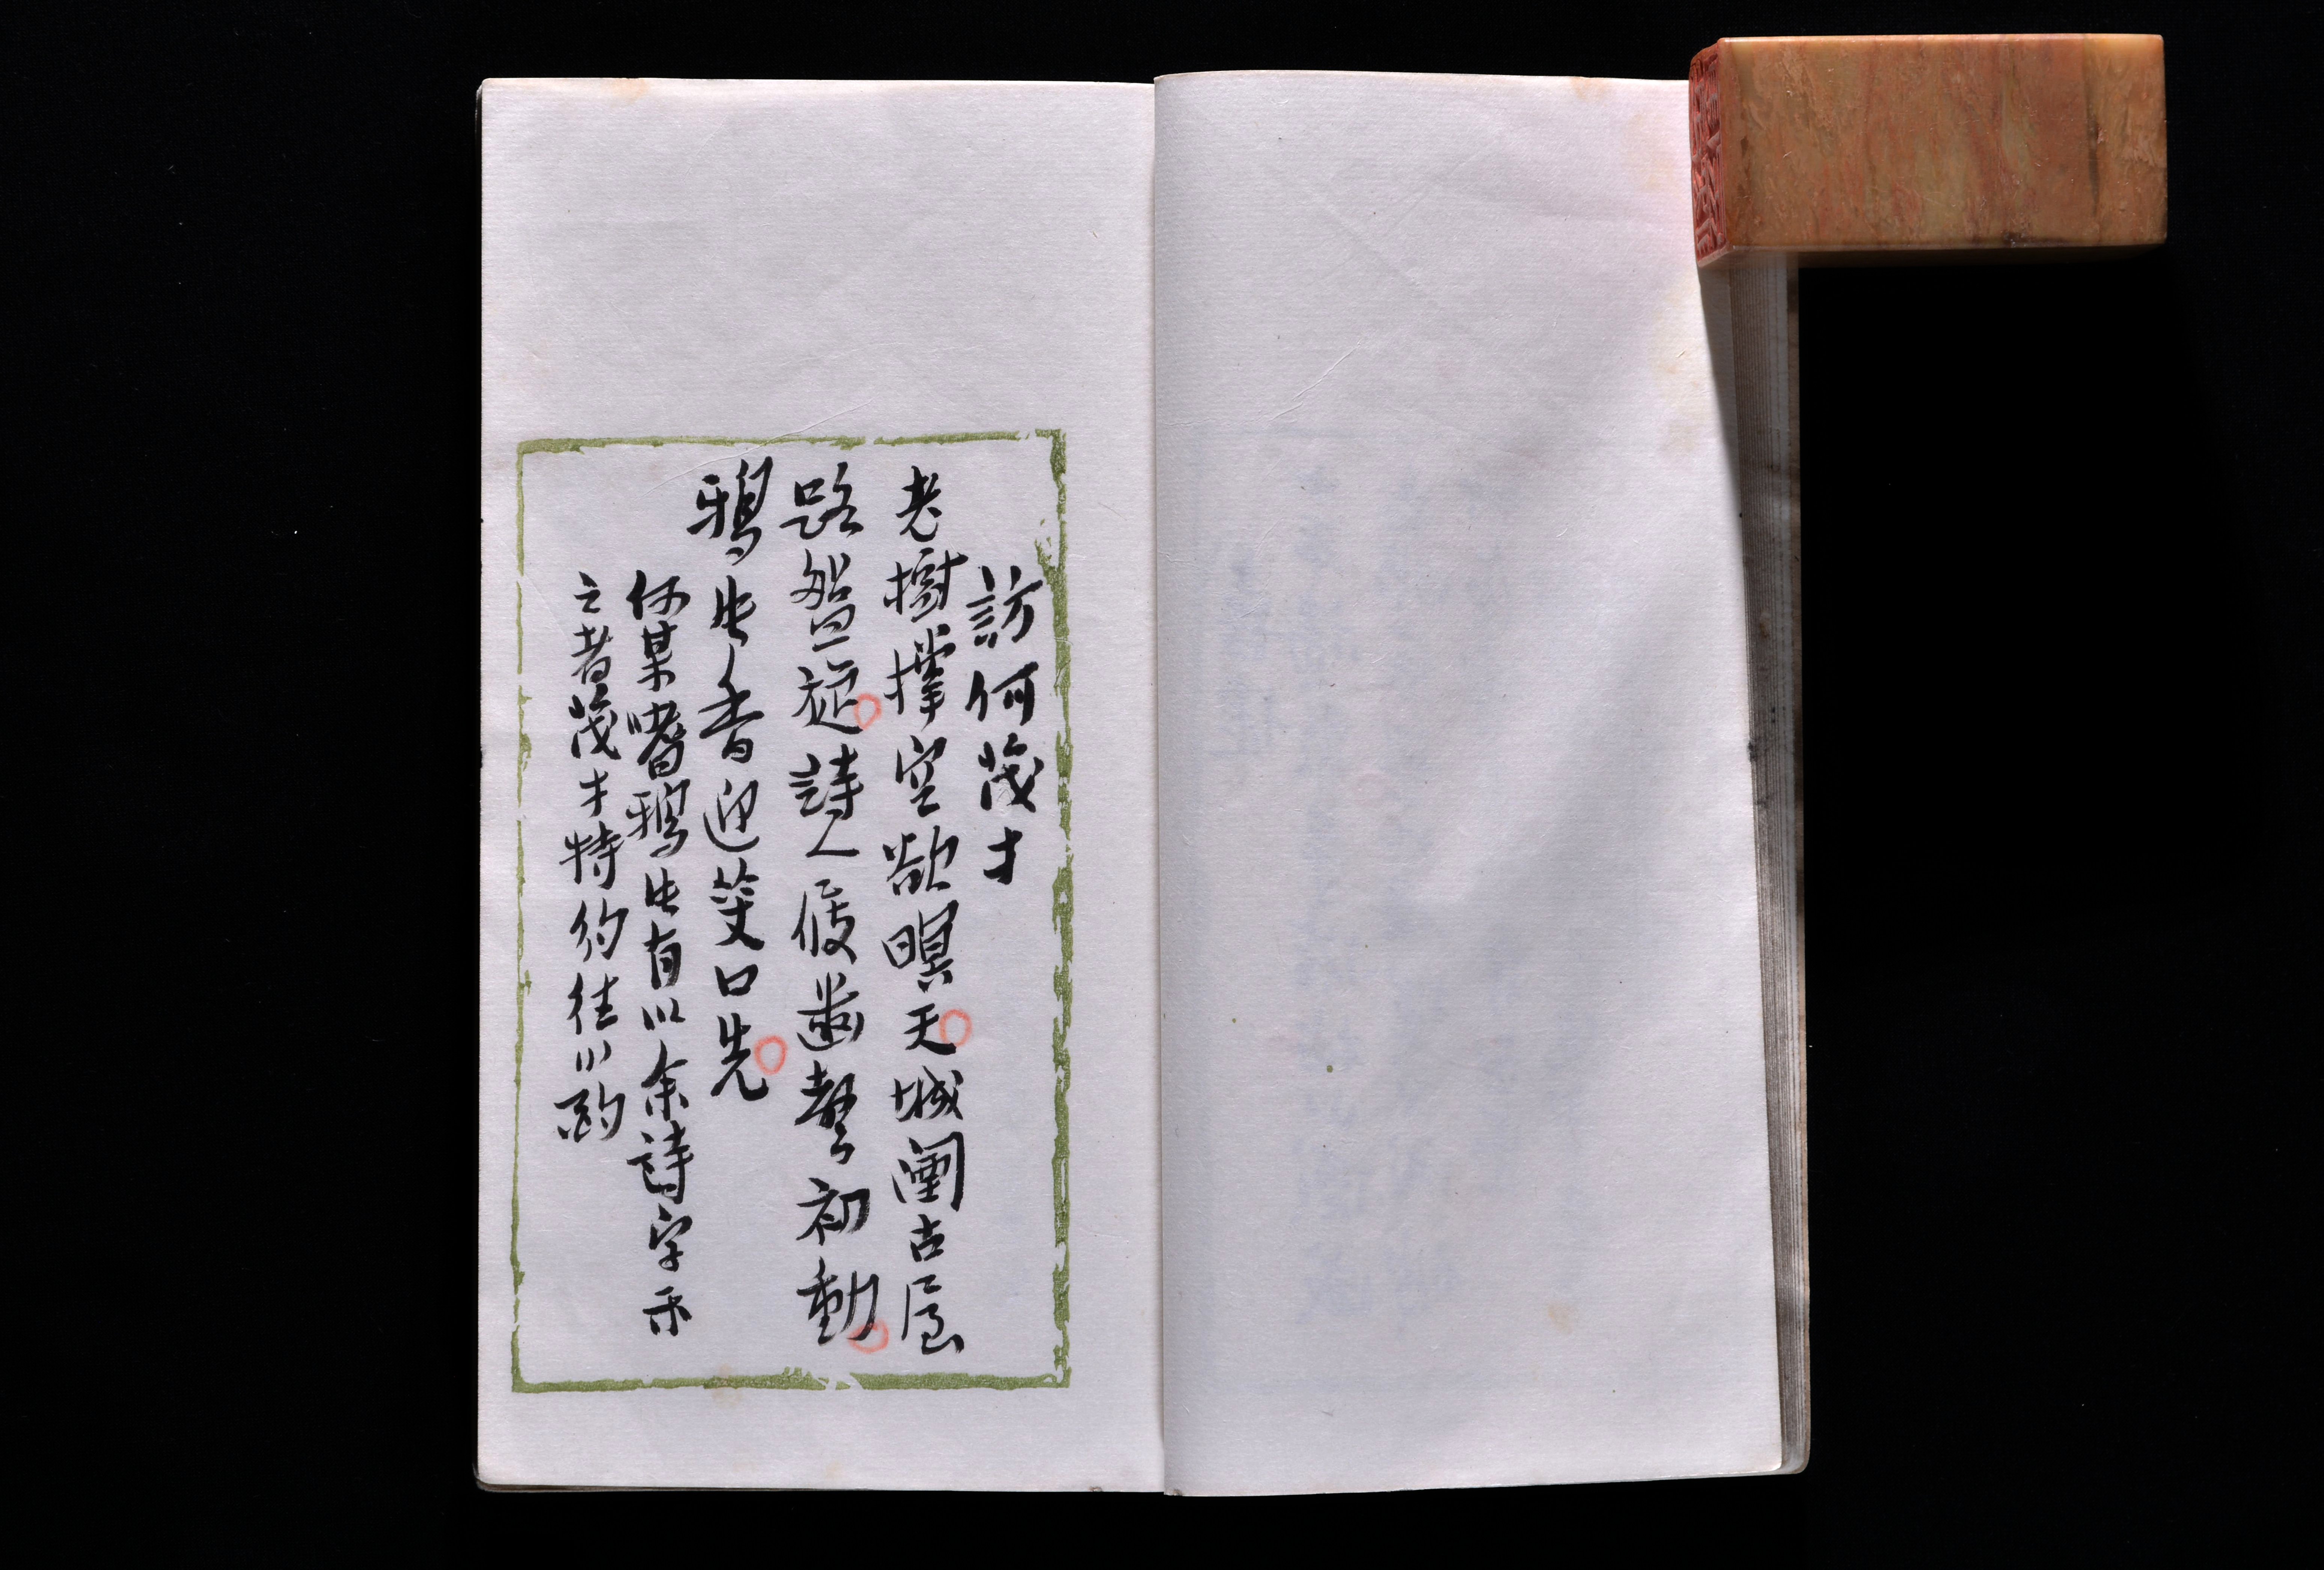 訪何茂才
老樹撐空欲暝天城闉古屋
路盤旋詩人屐齒聲初動
鴉片香迎笑口先
何某嗜鴉片有以余詩字示
之者茂才特約往小酌